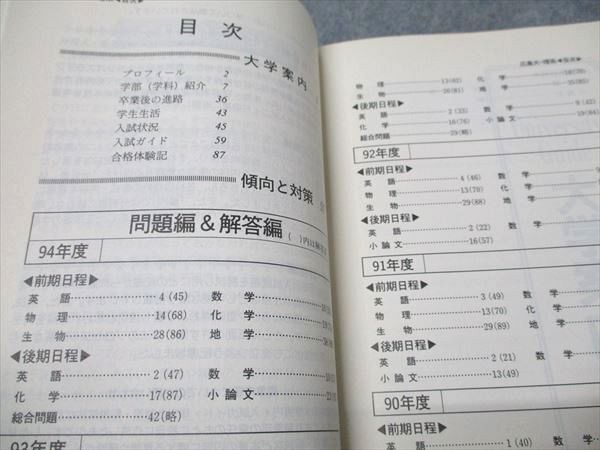 目次
大学案内
プロフィール 2
学部（学科）紹介 7
卒業後の進路 36
学生生活 43
入試状況 45
入試ガイド 59
合格体験記 87
傾向と対策
問題編＆解答編
94年度
◀前期日程▶
英語……4(45) 数学……
物理……14(68) 化学……
生物……28(86) 地学……
◀後期日程▶
英語……2(47) 数学……
化学……17(87) 小論文……
総合問題……42(略)
93年度
物理……13(82) 化学……
生物……26(81) 地学……
◀後期日程▶
英語……2(33) 数学……9(42)
化学……16(76) 小論文……19(84)
総合問題……29(略)
92年度
◀前期日程▶
英語……4(46) 数学……
物理……13(70) 化学……
生物……29(88) 地学……
◀後期日程▶
英語……2(22) 数学……
小論文……16(57)
91年度
◀前期日程▶
英語……3(49) 数学……
物理……13(70) 化学……
生物……29(89) 地学……
◀後期日程▶
英語……2(21) 数学……
小論文……13(49)
90年度
英語……1(40) 数学……